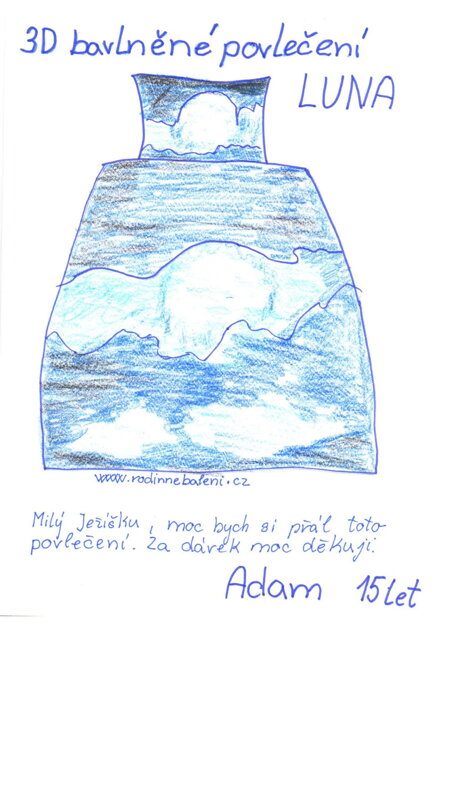 3D bavlněné povlečení
LUNA
www.rodinnebaleni.cz
Milý Ježíšku, moc bych si přál toto
povlečení. Za dárek moc děkuji.
Adam 15let